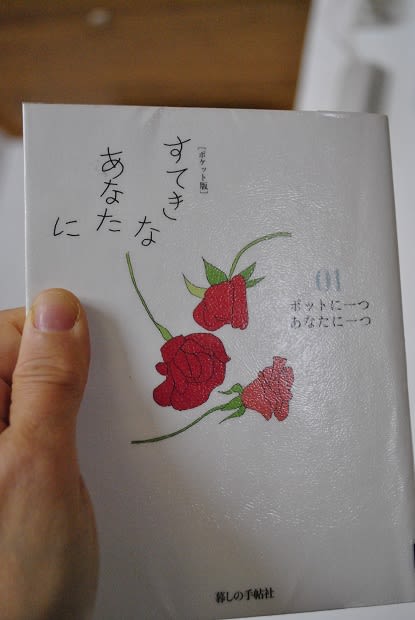 すてきな
あなたに
[ポケット版]
01
ポットに一つ
あなたに一つ
暮しの手帖社